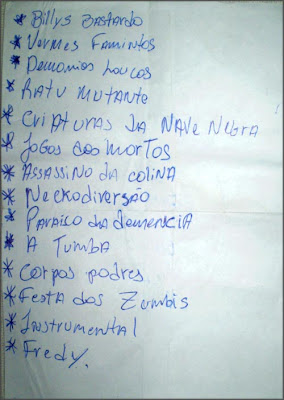 * Billys BASTARDO
* Vermes Famintos
* Demonios Loucos
* Ratu mutante
* Criaturas da Nave Negra
* Jogos dos mortos
* Assassino da colina
* Necrodiversão
* Paraiso da demencia
* A Tumba
* Corpos podres
* Festa dos Zumbis
* Instrumental
* Fredy.